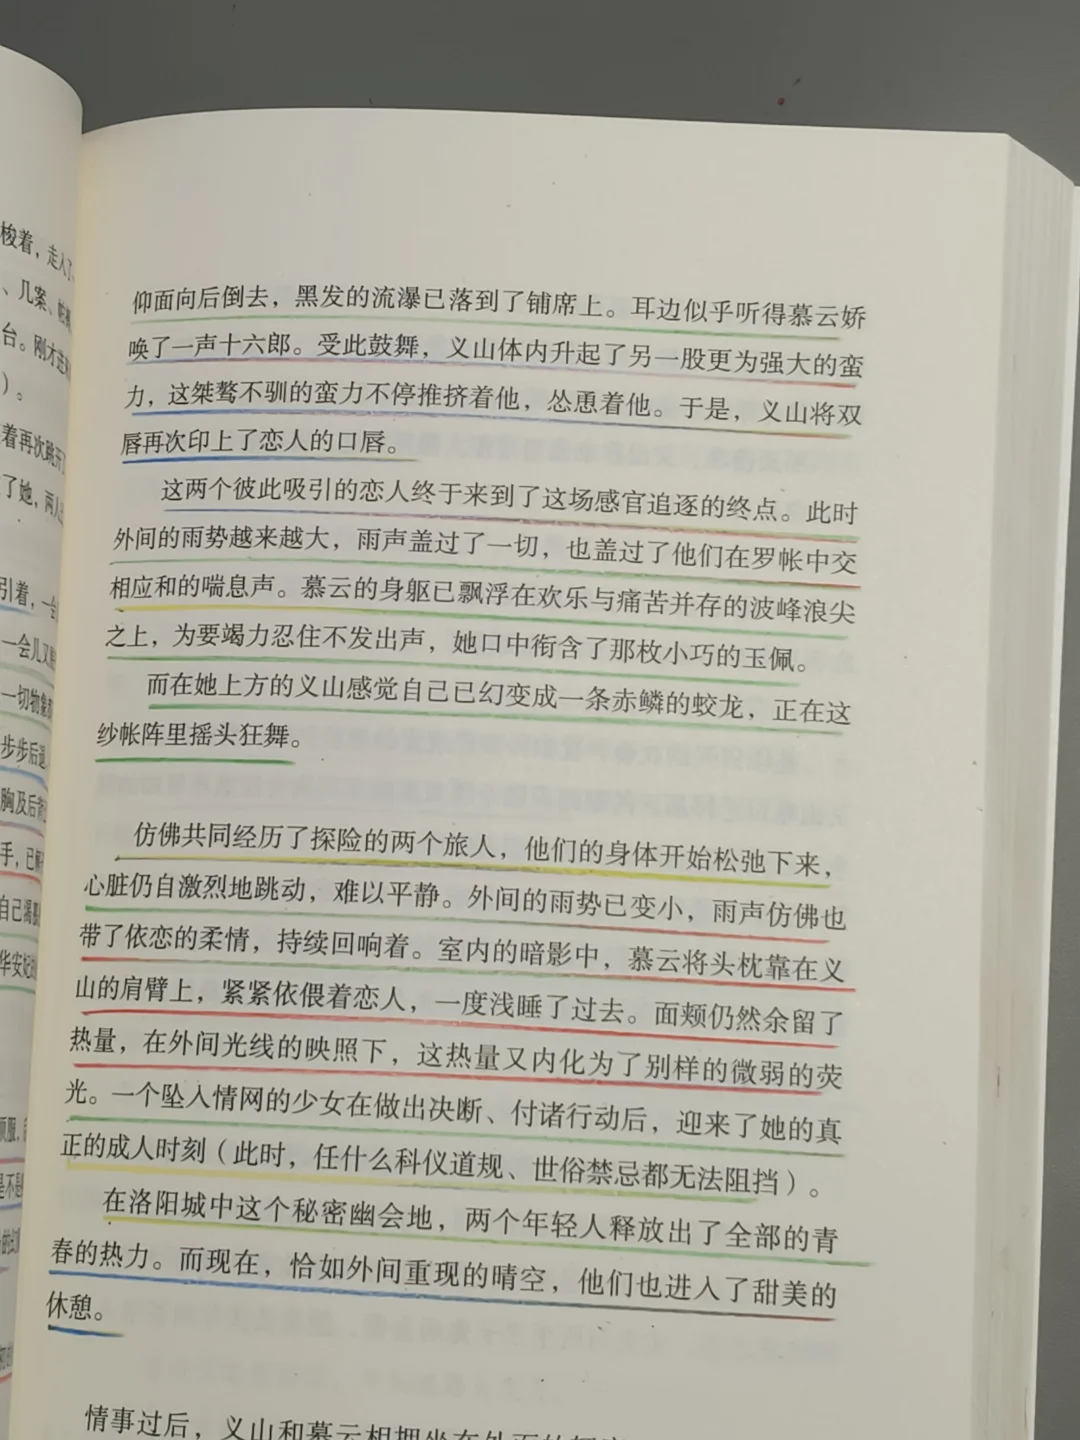 梭着，走入了
、几案、
台。刚才
）。
着再次跳开
了她，两人
引着，一会
一会儿又
一切物象
步步后退
胸及后背
手，已
自己
华安妃
是不是
仰面向后倒去，黑发的流瀑已落到了铺席上。耳边似乎听得慕云娇
唤了一声十六郎。受此鼓舞，义山体内升起了另一股更为强大的蛮
力，这桀骜不驯的蛮力不停推挤着他，怂恿着他。于是，义山将双
唇再次印上了恋人的口唇。
这两个彼此吸引的恋人终于来到了这场感官追逐的终点。此时
外间的雨势越来越大，雨声盖过了一切，也盖过了他们在罗帐中交
相应和的喘息声。慕云的身躯已飘浮在欢乐与痛苦并存的波峰浪尖
之上，为要竭力忍住不发出声，她口中衔含了那枚小巧的玉佩。
而在她上方的义山感觉自己已幻变成一条赤鳞的蛟龙，正在这
纱帐阵里摇头狂舞。
仿佛共同经历了探险的两个旅人，他们的身体开始松弛下来，
心脏仍自激烈地跳动，难以平静。外间的雨势已变小，雨声仿佛也
带了依恋的柔情，持续回响着。室内的暗影中，慕云将头枕靠在义
山的肩臂上，紧紧依偎着恋人，一度浅睡了过去。面颊仍然余留了
热量，在外间光线的映照下，这热量又内化为了别样的微弱的荧
光。一个坠入情网的少女在做出决断、付诸行动后，迎来了她的真
正的成人时刻（此时，任什么科仪道规、世俗禁忌都无法阻挡）。
在洛阳城中这个秘密幽会地，两个年轻人释放出了全部的青
春的热力。而现在，恰如外间重现的晴空，他们也进入了甜美的
休憩。
情事过后，义山和慕云相拥坐在外面的